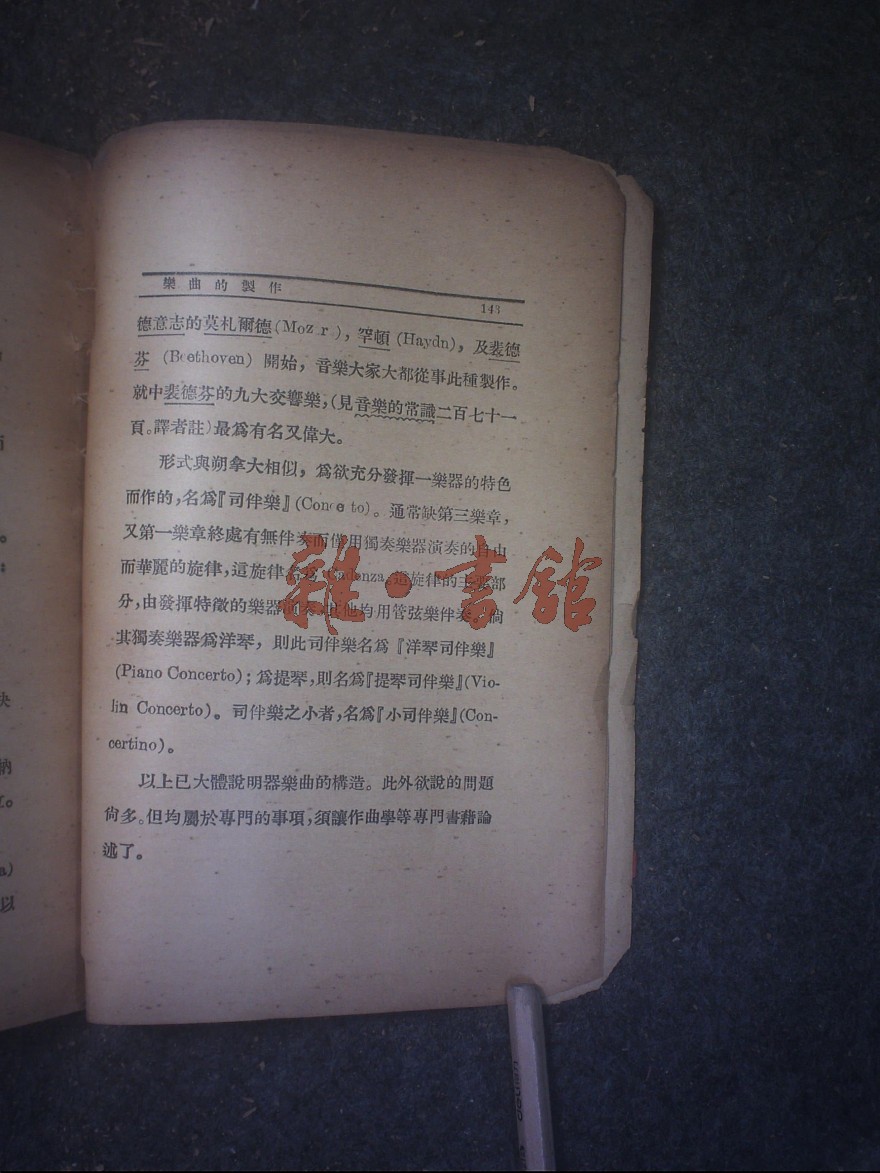 樂曲的製作
143
德意志的莫札爾德(Moz r ),罕頓(Haydn),及裴德
芬(Beethoven)開始,音樂大家大都從事此種製作。
就中裴德芬的九大交響樂,(見音樂的常識二百七十一
頁。譯者註)最爲有名又偉大。
形式與朔拿大相似,爲欲充分發揮一樂器的特色
而作的,名爲『司伴樂』(Conce to)。通常缺第三樂章,
又第一樂章終處有無伴奏而僅用獨奏樂器演奏的自由
而華麗的旋律,這旋律名爲 Cadenza,這旋律的主要部
分,由發揮特徵的樂器演奏,其他均用管弦樂伴奏。倘
其獨奏樂器爲洋琴,則此司伴樂名爲『洋琴司伴樂』
(Piano Concerto);爲提琴,則名爲『提琴司伴樂』(Vio-
lin Concerto)。司伴樂之小者,名爲『小司伴樂』(Con-
certino)。
以上已大體說明器樂曲的構造。此外欲說的問題
尙多。但均屬於專門的事項,須讓作曲學等專門書藉論
述了。
雜·書館
。
:
決
納
a)
以